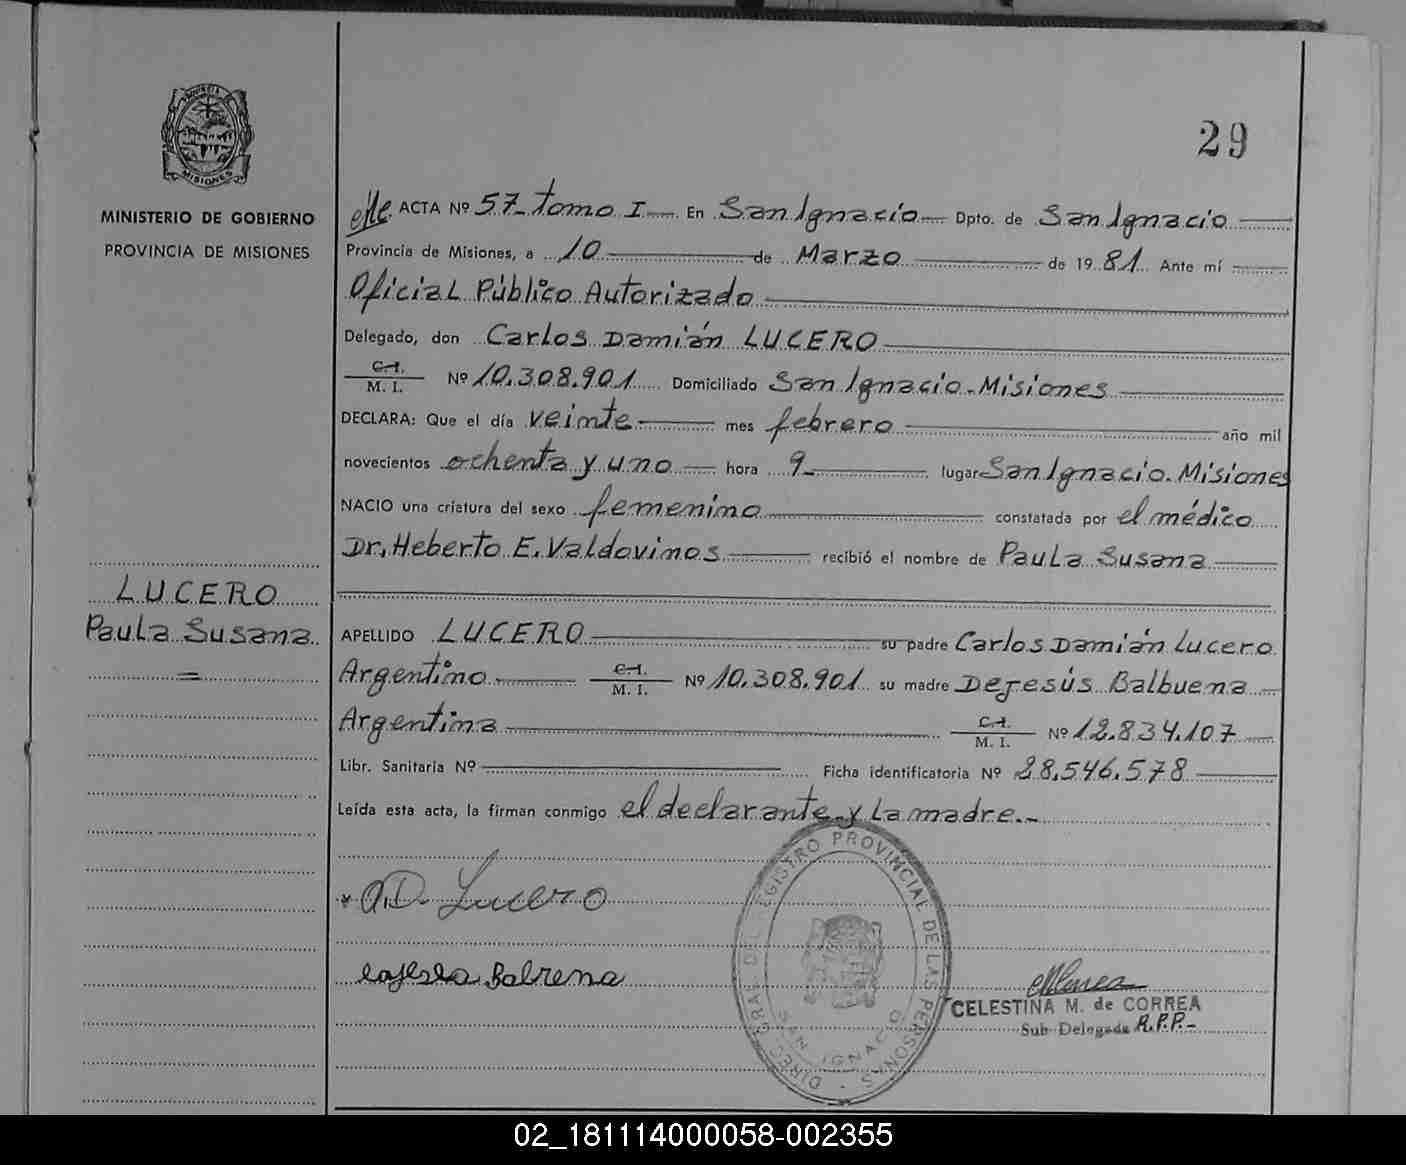 29
PROVINCIA DE
MISIONES
MINISTERIO DE GOBIERNO
PROVINCIA DE MISIONES
LUCERO
Paula Susana
=
ACTA Nº 57- tomo I En San Ignacio Dpto. de San Ignacio
Provincia de Misiones, a 10 de Marzo de 1981 Ante mí
Oficial Público Autorizado
Delegado, don Carlos Damián LUCERO
C.I.
M. I. Nº 10.308.901 Domiciliado San Ignacio-Misiones
DECLARA: Que el día veinte mes febrero año mil
novecientos ochenta y uno hora 9- lugar San Ignacio-Misiones
NACIO una criatura del sexo femenino constatada por el médico
Dr. Heberto E. Valdovinos recibió el nombre de Paula Susana
APELLIDO LUCERO su padre Carlos Damián Lucero
Argentino C.I. M. I. Nº 10.308.901 su madre Dejesús Balbuena
Argentina C.I. M. I. Nº 12.834.107
Libr. Sanitaria Nº Ficha identificatoria Nº 28.546.578
Leída esta acta, la firman conmigo el declarante y La madre.-
Lucero
DIREC. GRAL. DEL REGISTRO PROVINCIAL DE LAS PERSONAS
SAN IGNACIO
CELESTINA M. de CORREA
Sub-Delegada R.P.P.-
02_181114000058-002355